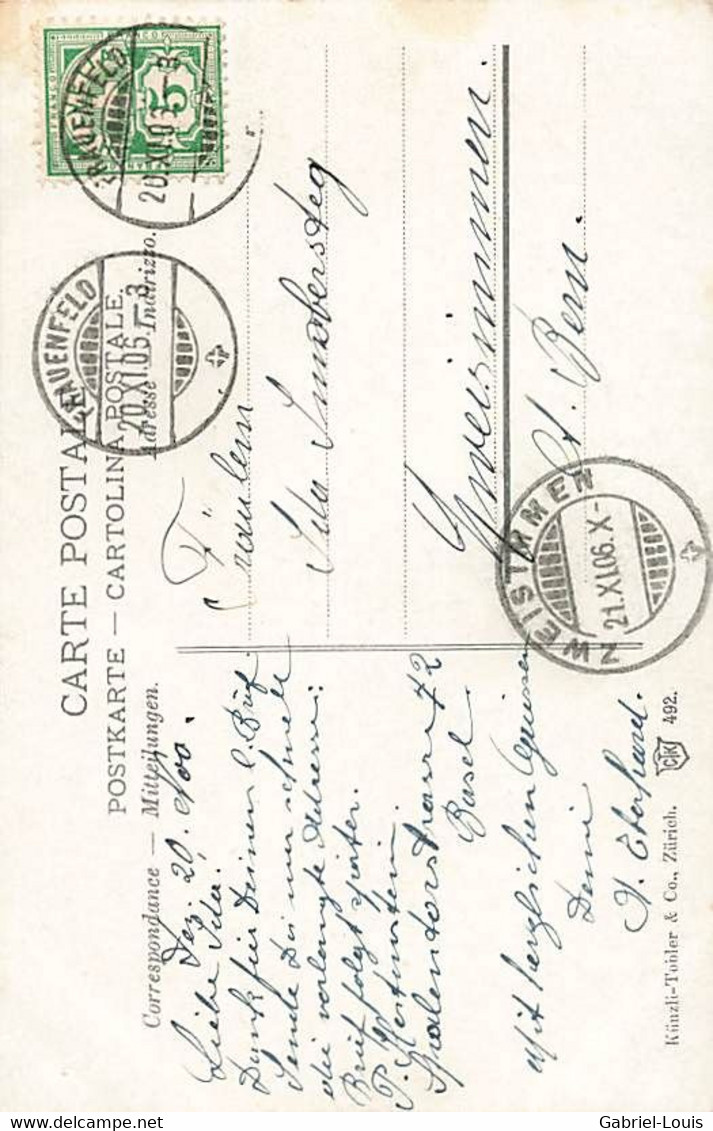 CARTE POSTALE
POSTKARTE — CARTOLINA POSTALE.
Correspondance — Mitteilungen.
Adresse Indirizzo.
20. Nov.
Liebe Ida.
Dank für Deinen l. Brief.
Sende Dir nur schnell
die verlangte Adresse:
Brief folgt später.
P. Hertenstein
Spalentorstrasse 72
Basel
Mit herzlichen Grüssen
Deine
J. Eberhard.
Fräulein
Ida
Zweisimmen.
Kt. Bern.
FRANCO
5
FRAUENFELD
20.XI.06.–8
FRAUENFELD
20.XI.06.–8
ZWEISIMMEN
21.XI.06.X–
Künzli-Tobler & Co., Zürich. 492.
Gabriel-Louis